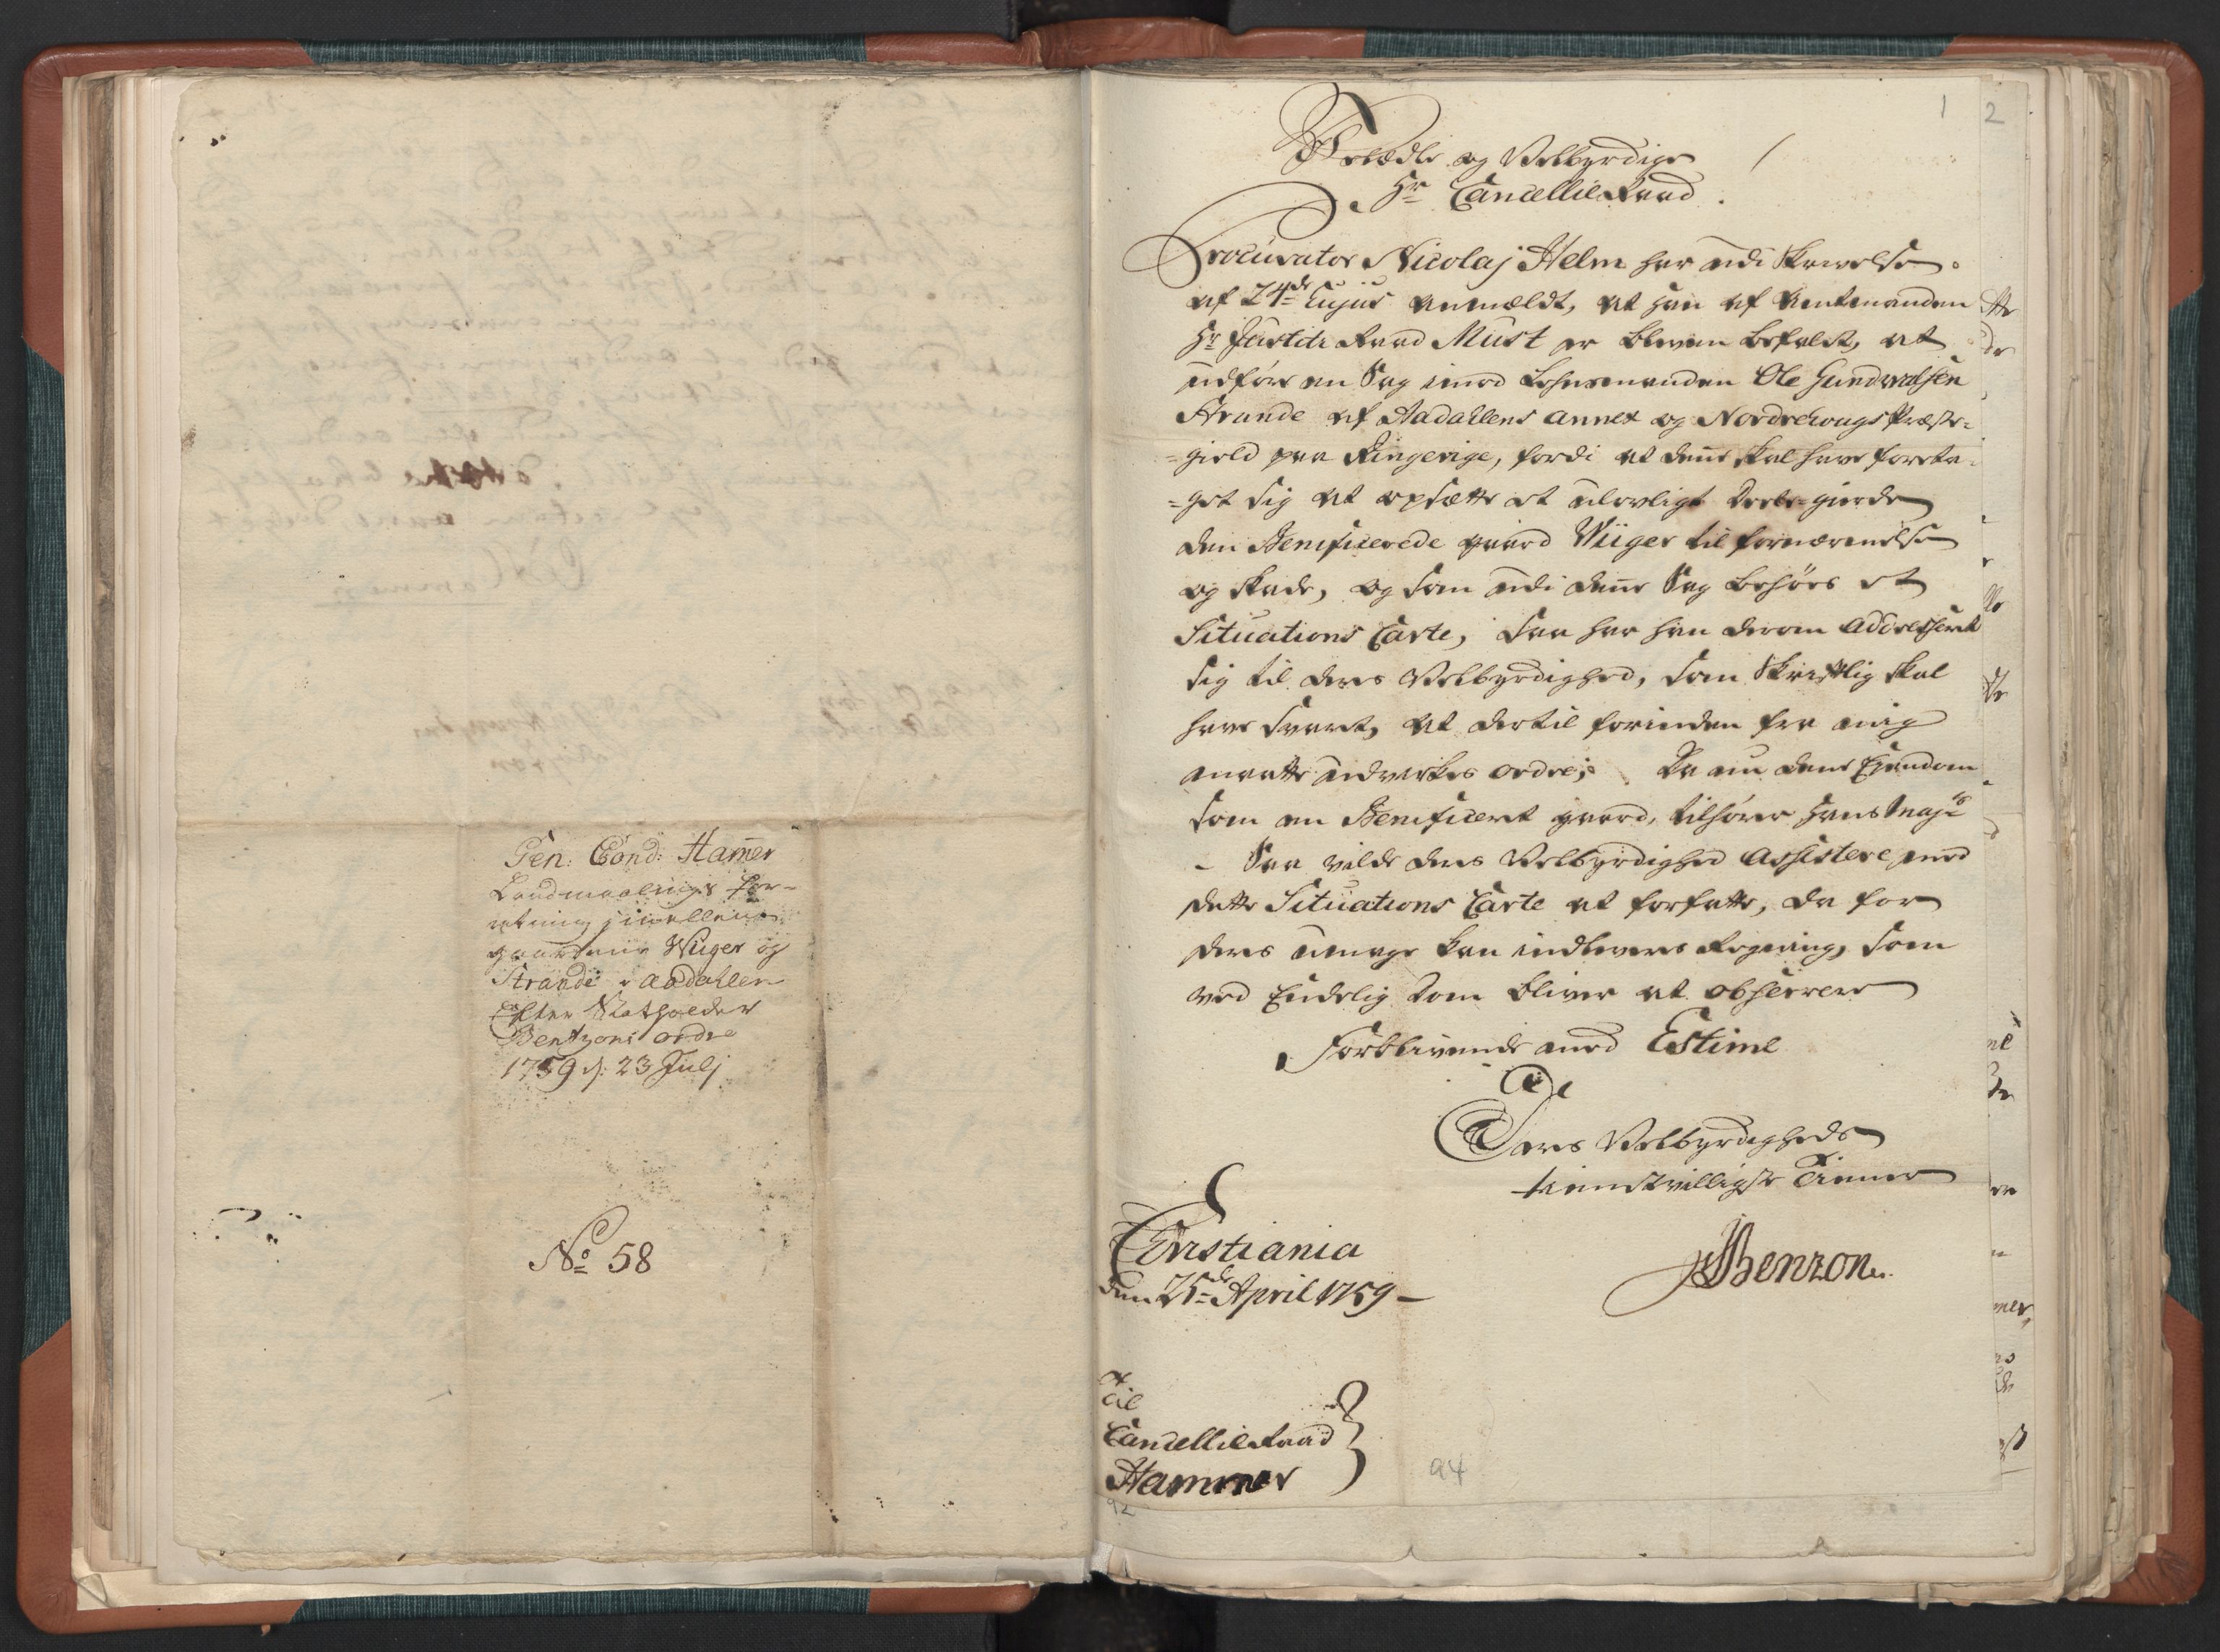 Gen: Cond: Hamer
Landmaalings For-
retning imellem
gaardene Wiiger og
Strande i Aadahlen
efter Statholder
Bentzons ordre
1759 d: 23 Julj
No 58
1 2
Velædle og Velbyrdige
Hr Cancellie Raad.
Procurator Nicolaj Helm har udi Skrivelse
af 24de Cujus anmældt, at han af Amtmanden
Hr Justitz Raad Must er bleven befalet, at
udføre en Sag imod Lehnsmanden Ole Gundvalsen
Strande af Aadahlens annex og Nordrehougs Præste-
-gield paa Ringerige, fordi at denne skal have foreta-
-get sig at opsætte et ulovligt gierde
den Beneficerede gaard Wiiger til fornærmelse
og skade, og som udi denne Sag behøves et
Situations Carte, saa har han derom addresseret
sig til deres Velbyrdighed, som skriftlig skal
have svaret, at dertil forinden fra mig
maatte udvirkes ordre; Da nu denne Ejendom
som en Beneficeret gaard, tilhører Hans Majts
- Saa vilde deres Velbyrdighed assistere med
dette Situations Carte at forfatte, da for
deres umage kan indleveres Regning, som
ved Endelig Dom bliver at observere
Forblivende med Estime
Deres Velbyrdigheds
tienstvilligste Tiener
JBenzon
Christiania
den 25de April 1759 -
Til
Cancellie Raad
Hammer
94
92